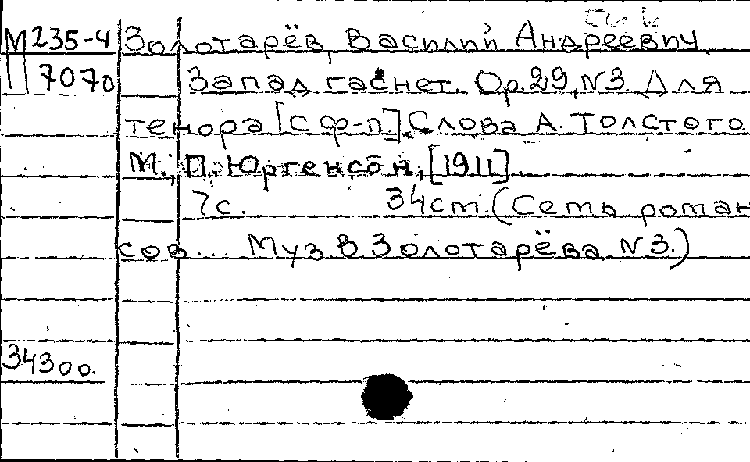 М 235-4 Золотарёв, Василий Андреевич
7070 Запад гаснет. Op. 29, N3 Для
тенора [с ф-п.]. Слова А. Толстого
М., П. Юргенсон, [1911].
7с. 34cm. (Семь роман
сов... Муз. В. Золотарёва. N3.)
34300.